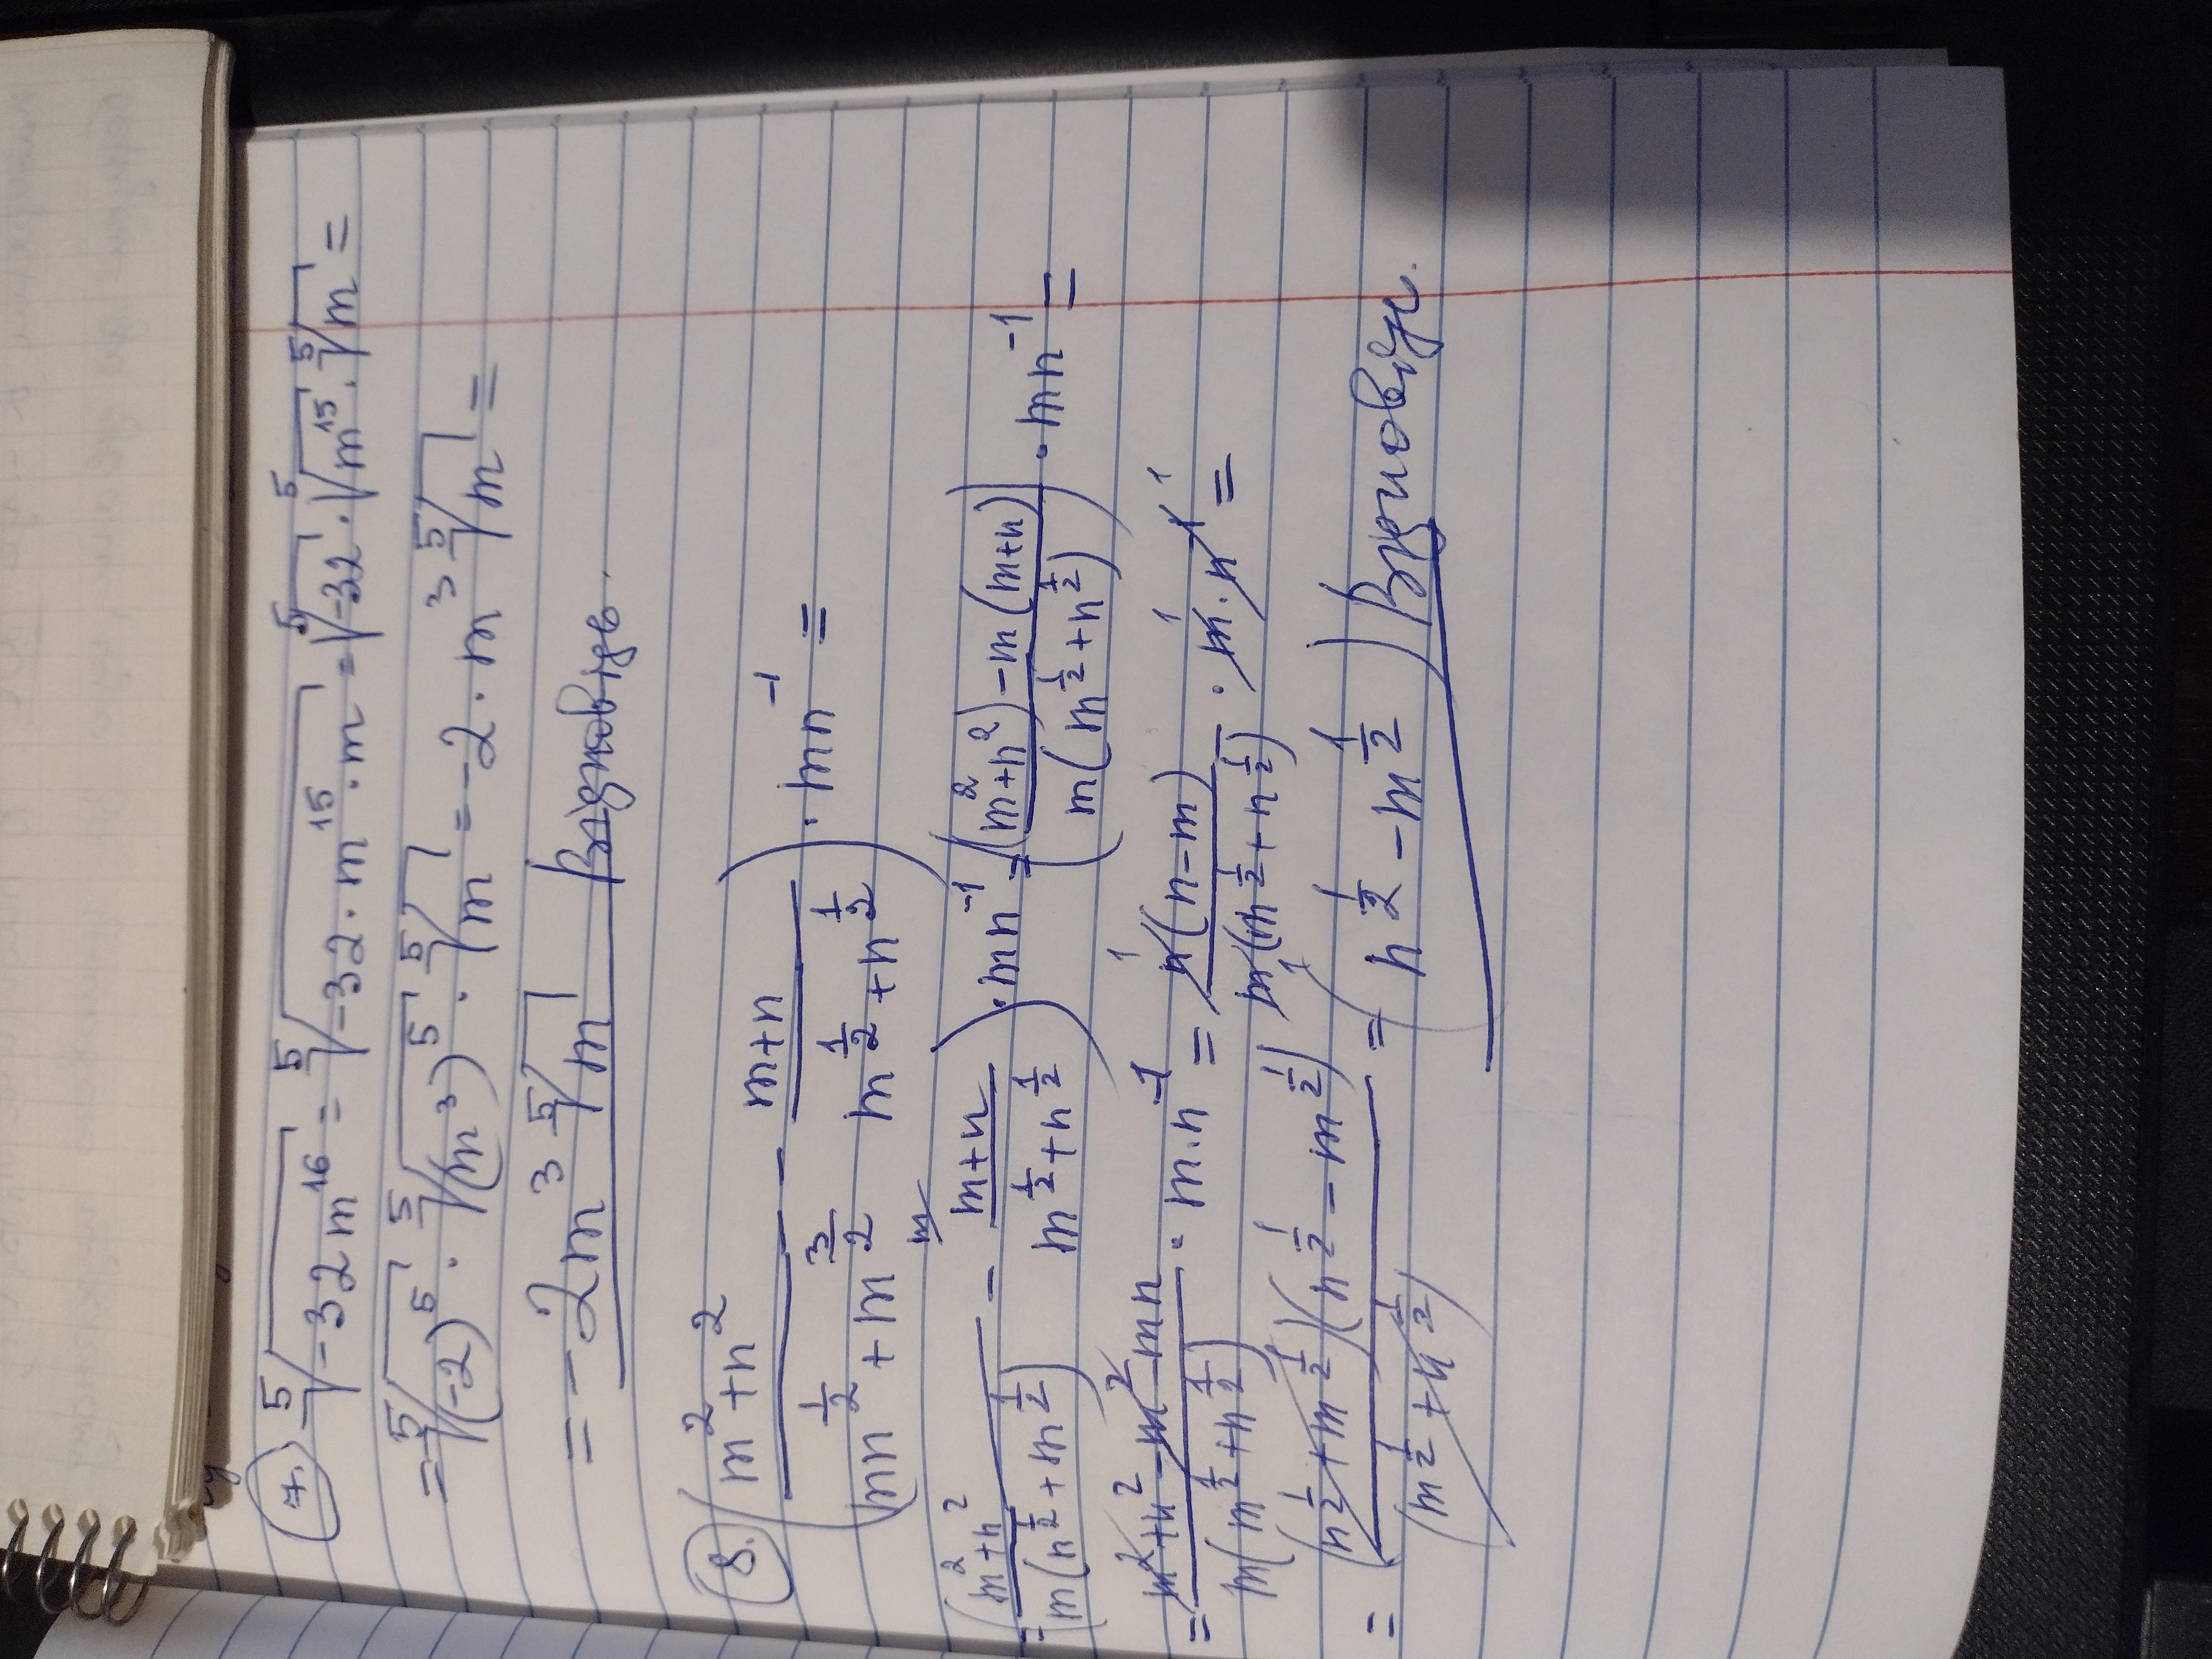 7. ⁵√-32m¹⁶ = ⁵√-32·m¹⁵·m = ⁵√-32 · ⁵√m¹⁵ · ⁵√m =
= ⁵√(-2)⁵ · ⁵√(m³)⁵ · ⁵√m = -2·m³ ⁵√m =
= -2m³ ⁵√m
8. ((m²+n²)/(mn^(1/2)+m^(3/2)) - (m+n)/(m^(1/2)+n^(1/2))) · mn⁻¹ =
m
= ((m²+n²)/(m(n^(1/2)+m^(1/2))) - (m+n)/(m^(1/2)+n^(1/2))) · mn⁻¹ = (((m²+n²)-m(m+n))/(m(m^(1/2)+n^(1/2)))) · mn⁻¹ =
= (m²+n²-m²-mn)/(m(m^(1/2)+n^(1/2))) · m·n⁻¹ = (n(n-m))/(m(m^(1/2)+n^(1/2))) · m·n⁻¹ =
= ((n^(1/2)+m^(1/2))(n^(1/2)-m^(1/2)))/(m^(1/2)+n^(1/2)) = (n^(1/2)-m^(1/2))